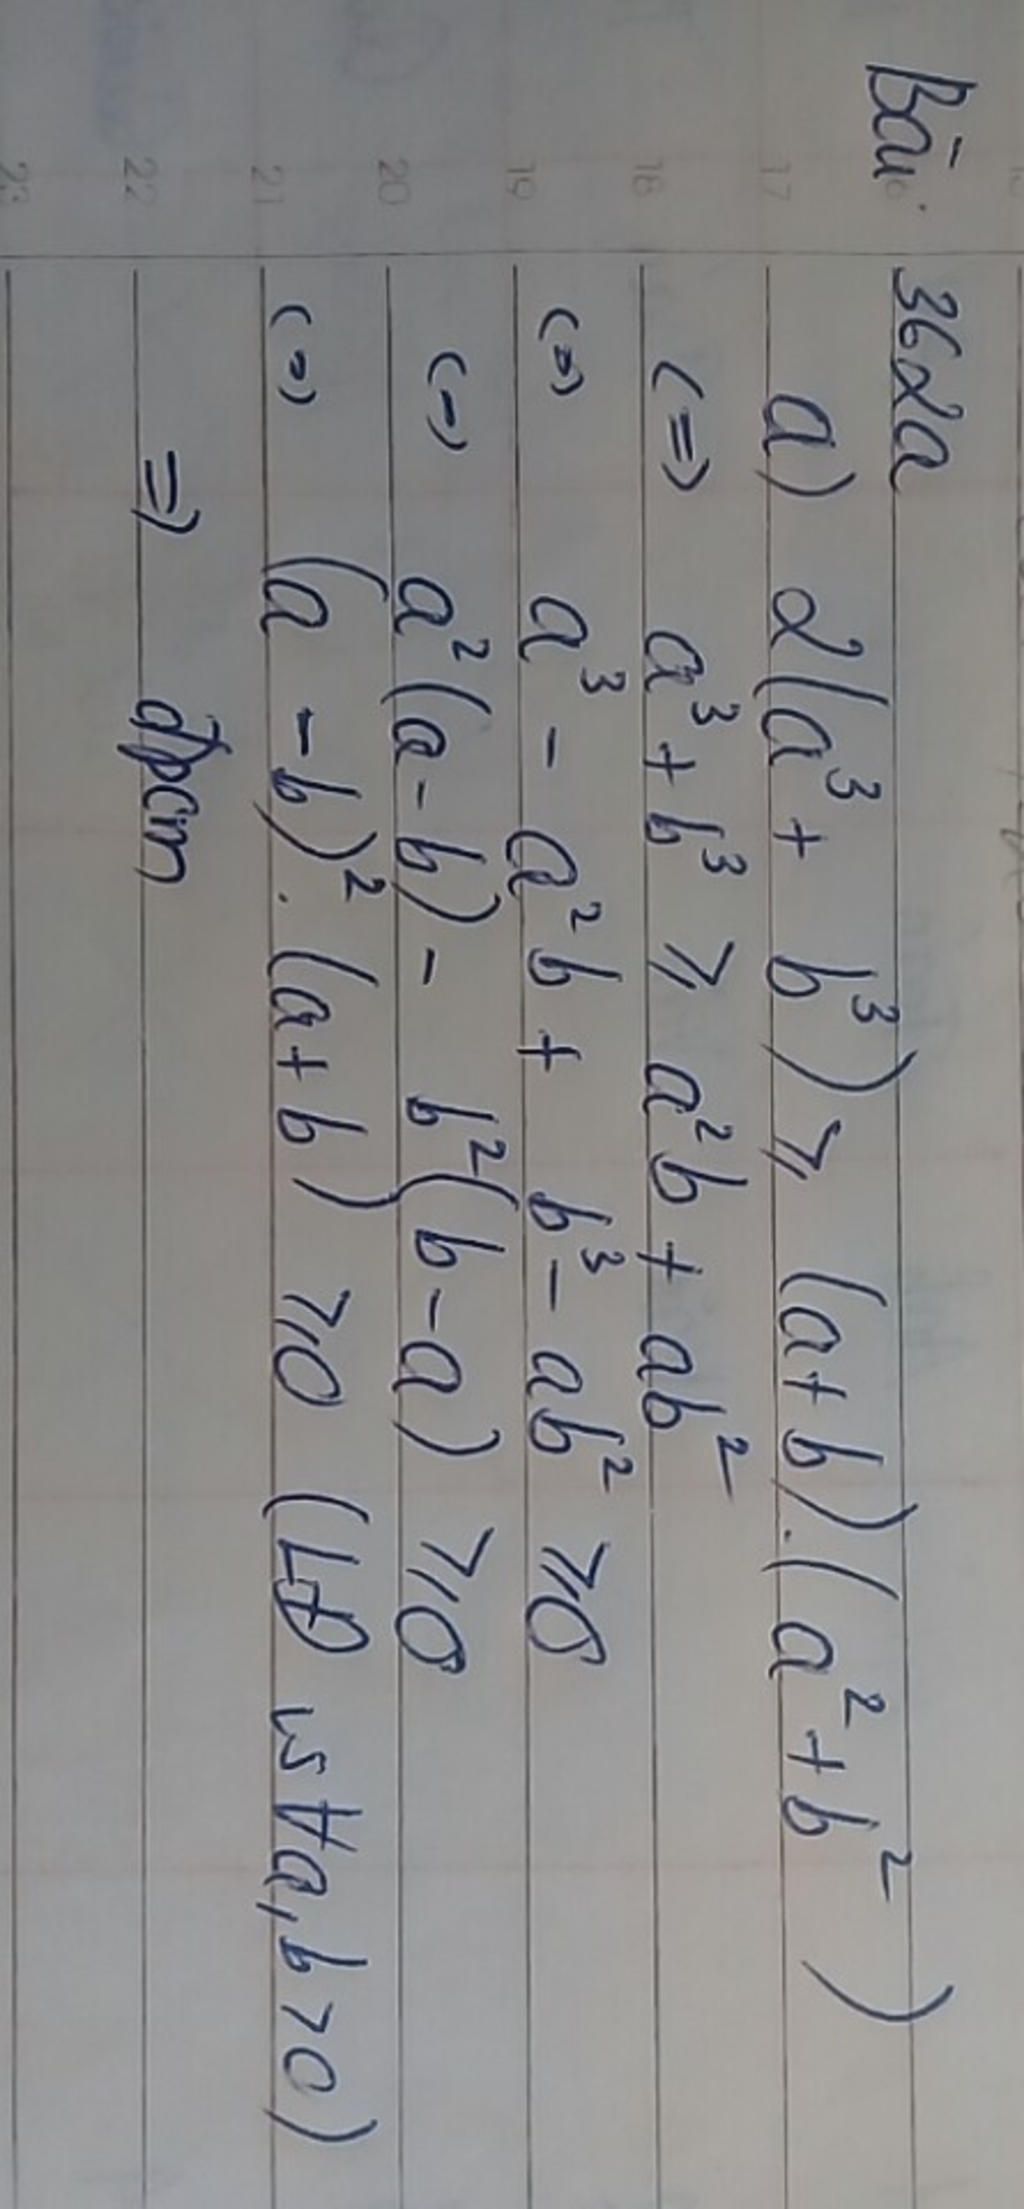 Bài 362a
a) 2(a³ + b³) ⩾ (a+b).(a²+b²)
<=> a³+b³ ⩾ a²b + ab²
<=> a³ - a²b + b³ - ab² ⩾0
<=> a²(a-b) - b²(b-a) ⩾0
<=> (a-b)².(a+b) ⩾0 (LĐ với ∀a,b>0)
=> đpcm
17
18
19
20
21
22